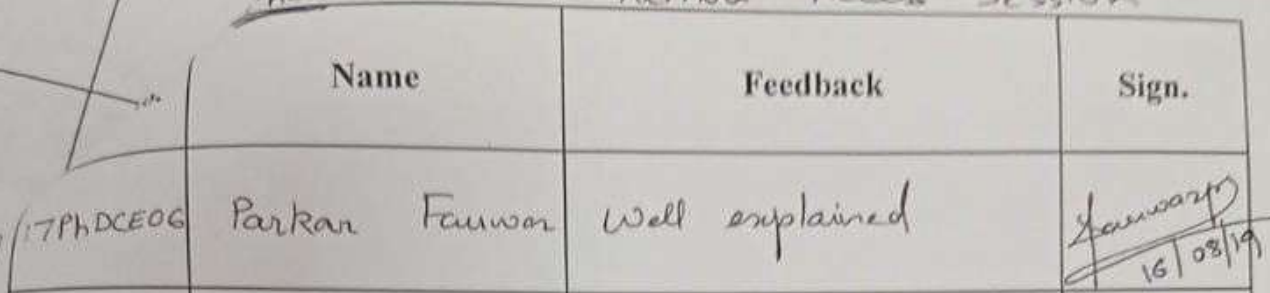 Name Feedback Sign.
17PhDCE06 Parkar Fauwar Well explained
16/08/19